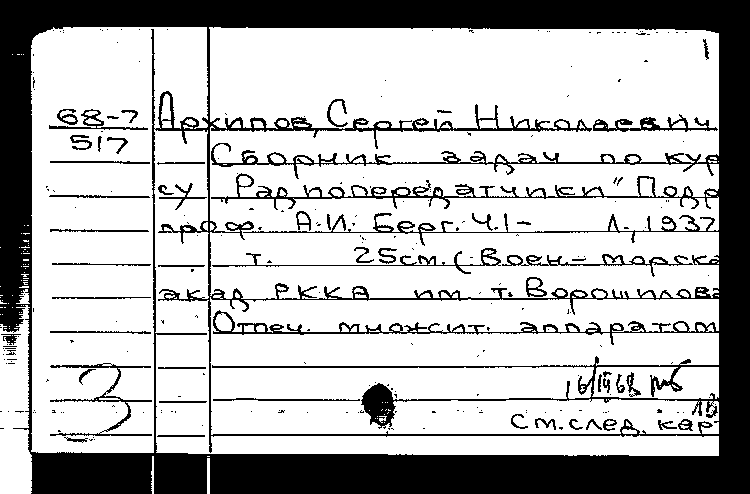 1
68-7 Архипов, Сергей Николаевич
517
Сборник задач по кур
су „Радиопередатчики" Подр
проф. А.И. Берг. Ч.1- Л., 1937
т. 25см. (Воен-морска
акад РККА им т. Ворошилова
Отпеч. множит. аппаратом
16/III 68
3 18
См. след. кар